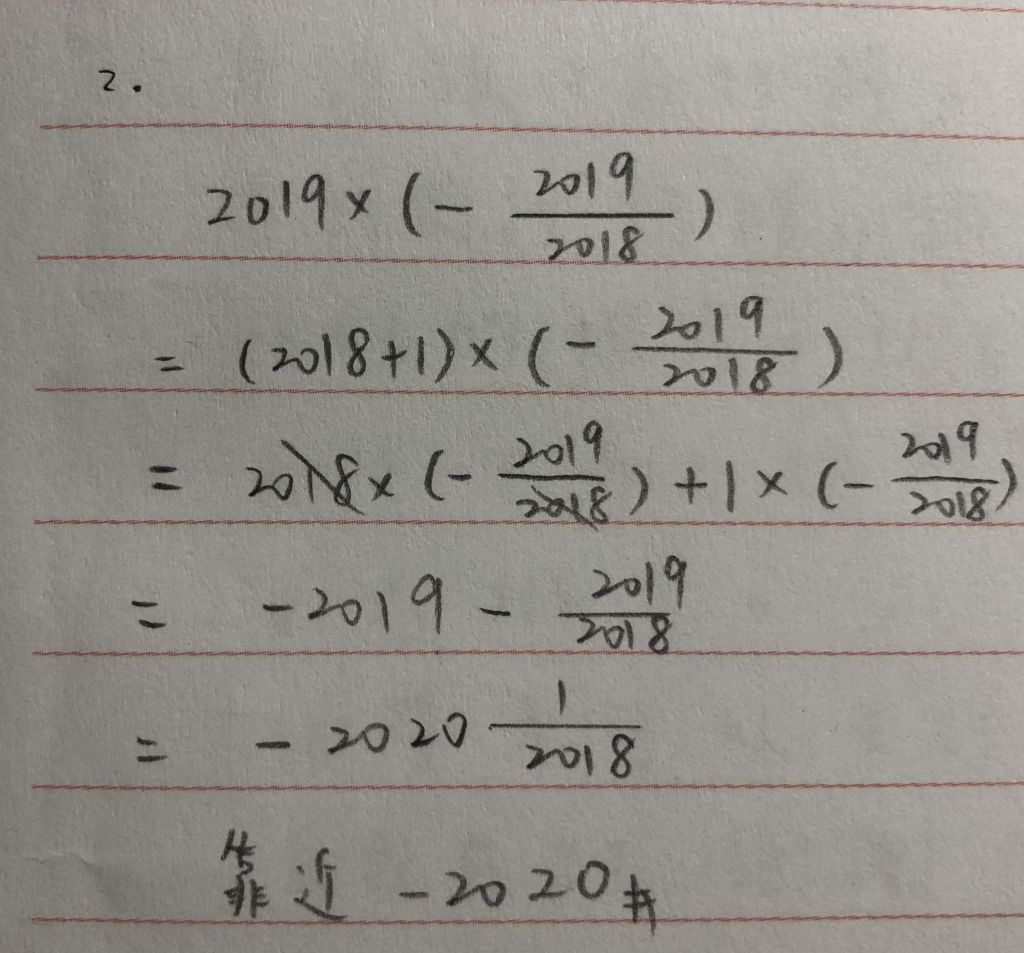 2.
2019×(-2019/2018)
=(2018+1)×(-2019/2018)
=2018×(-2019/2018)+1×(-2019/2018)
=-2019-2019/2018
=-2020 1/2018
靠近-2020#